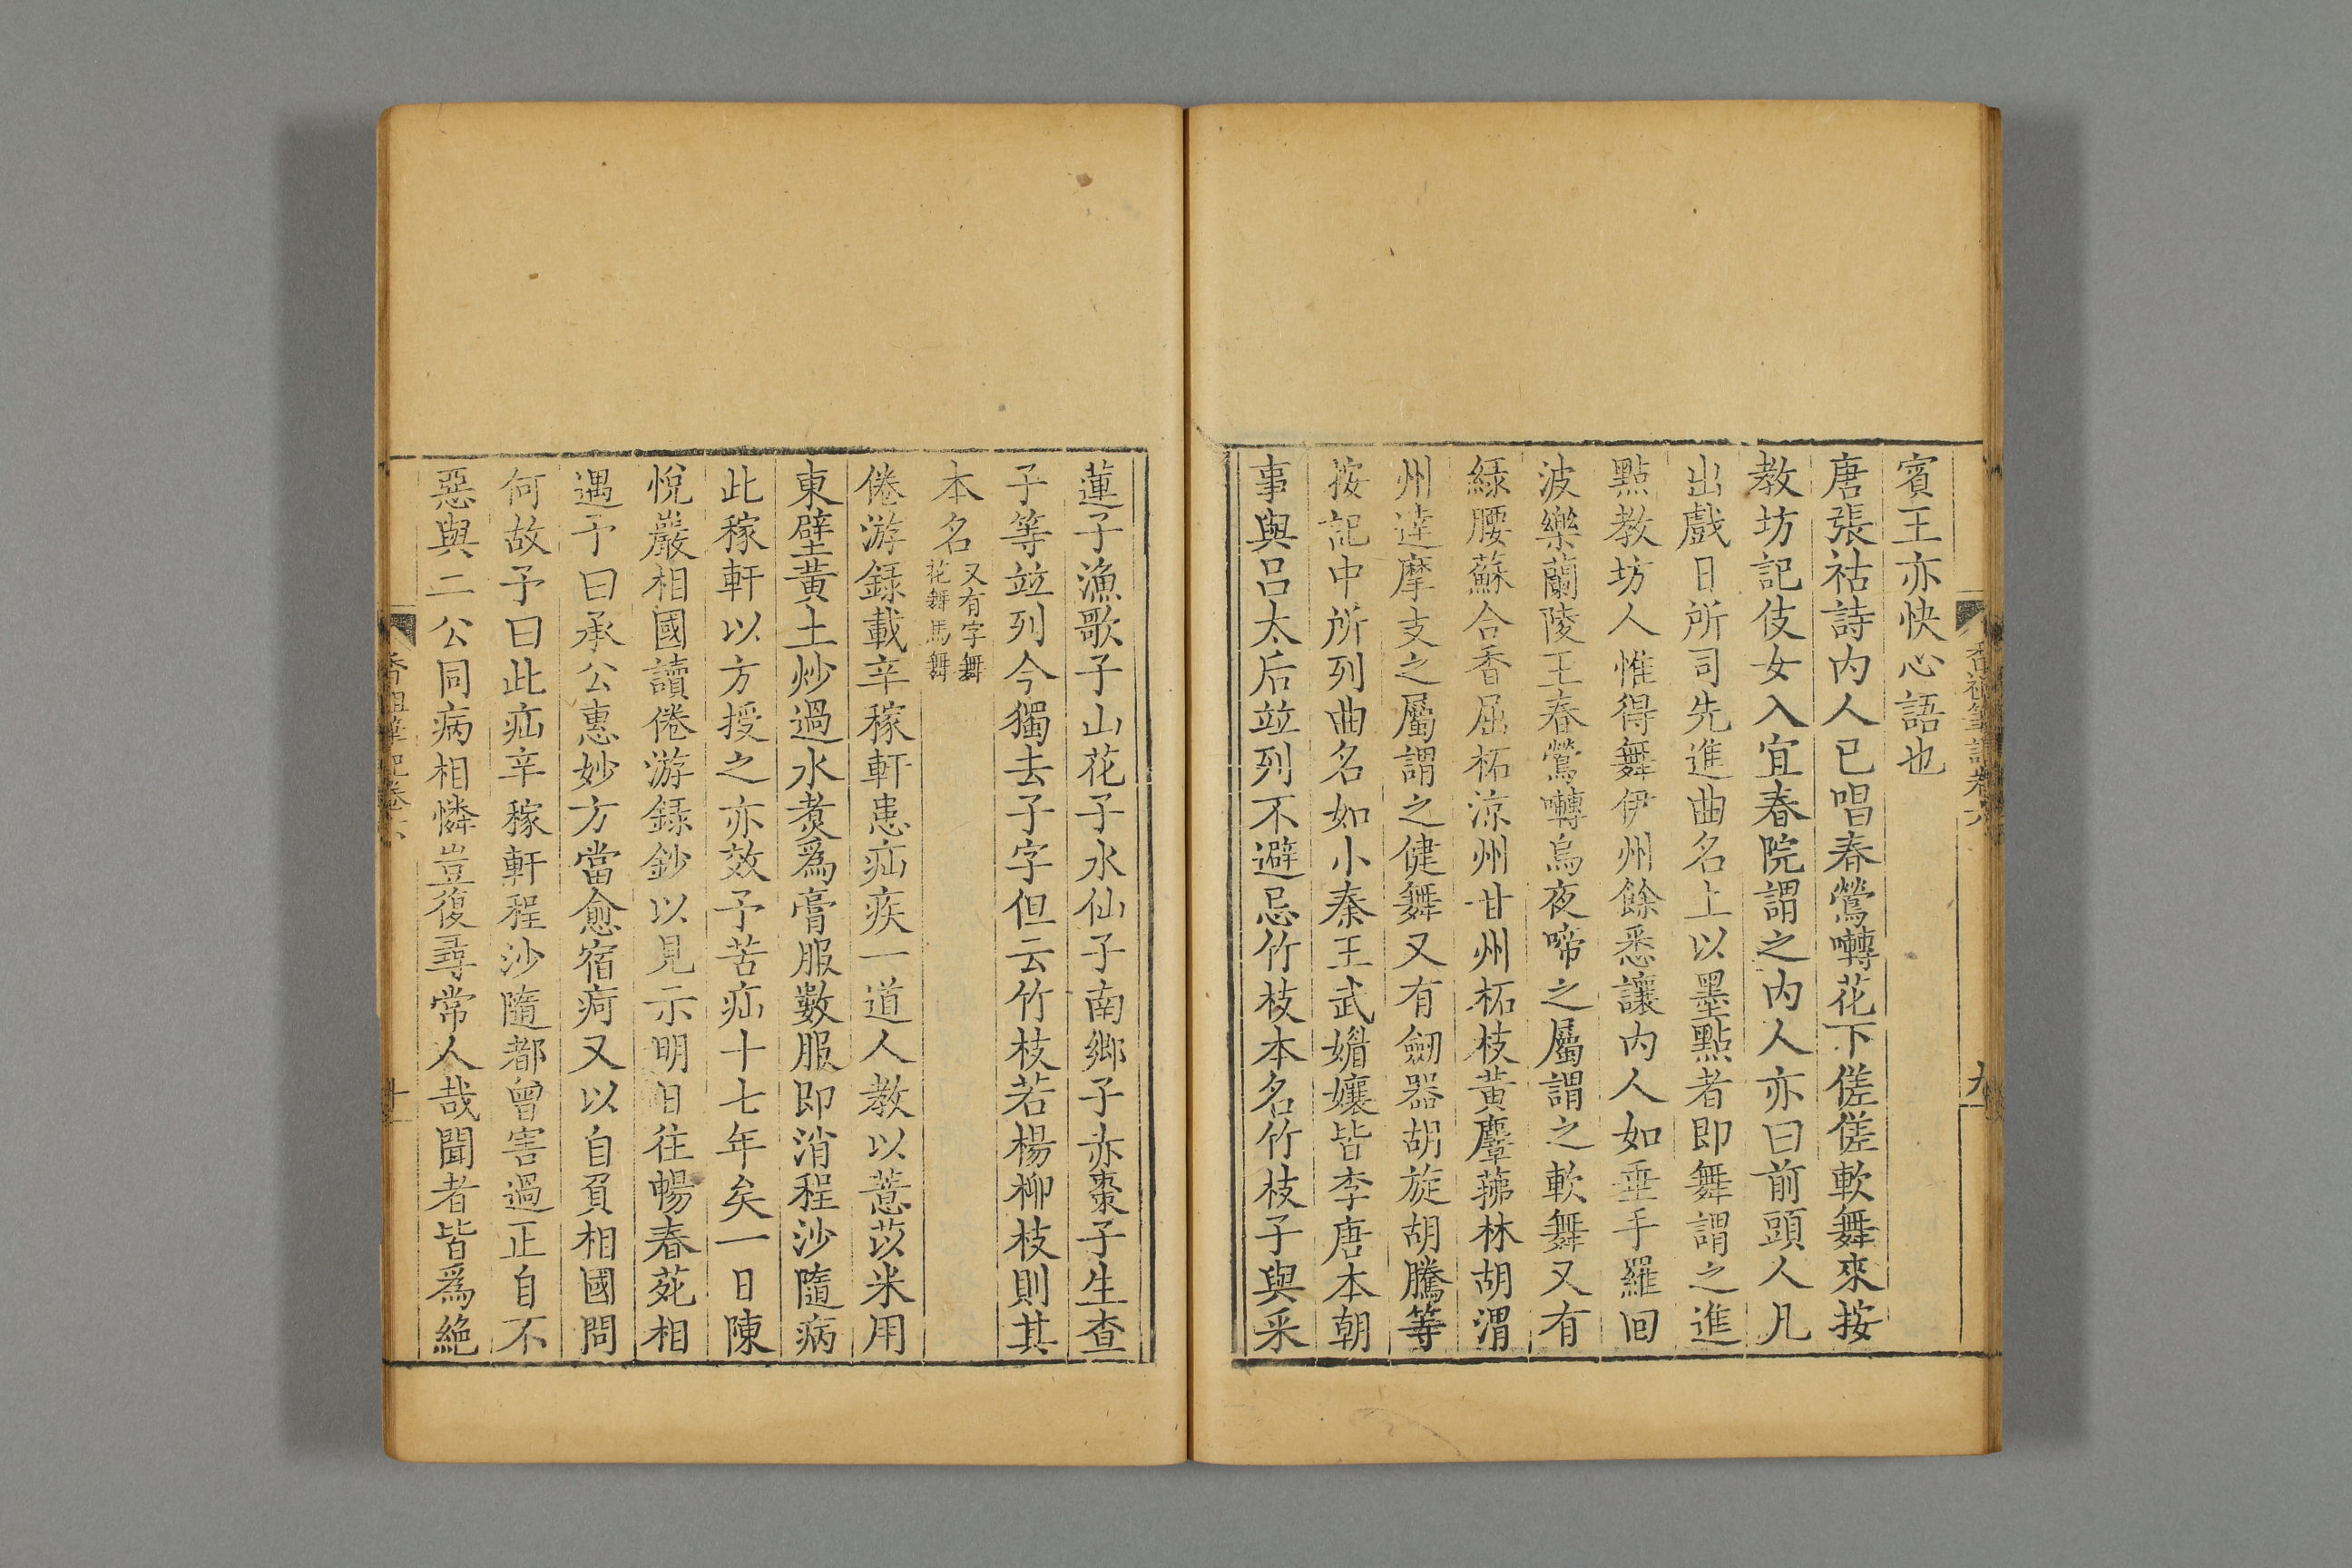 香祖筆記卷六
九
賓王亦快心語也
唐張祜詩内人已唱春鶯囀花下傞傞軟舞來按
教坊記伎女入宜春院謂之内人亦曰前頭人凡
出戲日所司先進曲名上以墨點者即舞謂之進
點教坊人惟得舞伊州餘悉讓内人如垂手羅回
波樂蘭陵王春鶯囀烏夜啼之屬謂之軟舞又有
緑腰蘇合香屈柘涼州甘州柘枝黄麞蕟林胡渭
州達摩支之屬謂之健舞又有劒器胡旋胡騰等
按記中所列曲名如小秦王武媚孃皆李唐本朝
事與吕太后竝列不避忌竹枝本名竹枝子與采
蓮子漁歌子山花子水仙子南鄉子赤棗子生查
子等竝列今獨去子字但云竹枝若楊柳枝則其
本名又有字舞花舞馬舞
倦游録載辛稼軒患疝疾一道人教以薏苡米用
東壁黄土炒過水煑爲膏服數服即消程沙隨病
此稼軒以方授之亦效予苦疝十七年矣一日陳
悅巖相國讀倦游録鈔以見示明日往暢春苑相
遇予曰承公惠妙方當愈宿疴又以自負相國問
何故予曰此疝辛稼軒程沙隨都曾害過正自不
惡與二公同病相憐豈復尋常人哉聞者皆爲絶
香祖筆記卷六
十